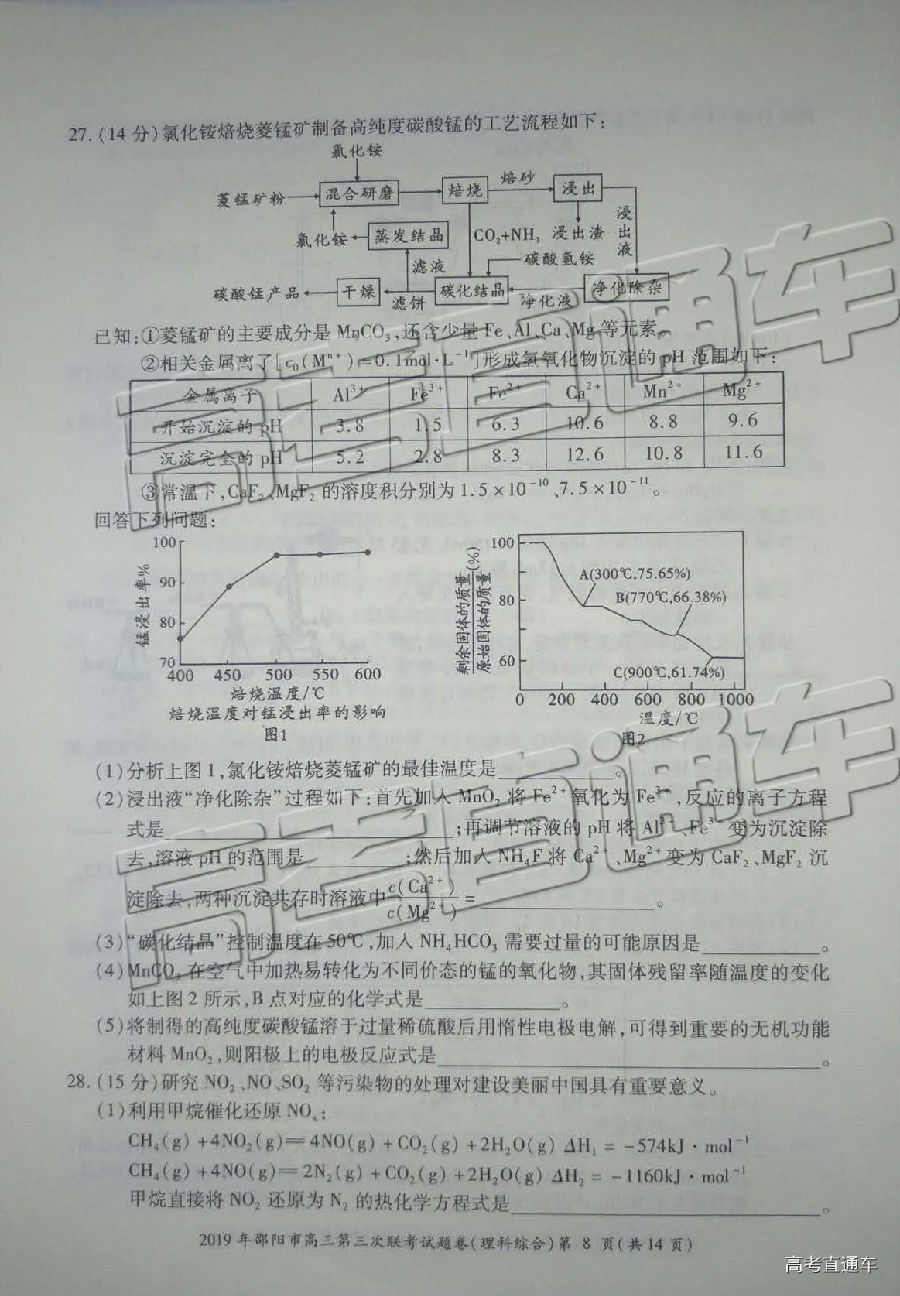 27.(14分)氯化铵焙烧菱锰矿制备高纯度碳酸锰的工艺流程如下:
氯化铵
菱锰矿粉 混合研磨 焙烧 焙砂 浸出
氯化铵 蒸发结晶 CO₂+NH₃ 浸出渣 浸出液
滤液 碳酸氢铵
碳酸锰产品 干燥 滤饼 碳化结晶 净化液 净化除杂
已知:①菱锰矿的主要成分是MnCO₃,还含少量Fe、Al、Ca、Mg等元素。
②相关金属离子[c₀(Mⁿ⁺)=0.1mol·L⁻¹]形成氢氧化物沉淀的pH范围如下:
金属离子 Al³⁺ Fe³⁺ Fe²⁺ Ca²⁺ Mn²⁺ Mg²⁺
开始沉淀的pH 3.8 1.5 6.3 10.6 8.8 9.6
沉淀完全的pH 5.2 2.8 8.3 12.6 10.8 11.6
③常温下,CaF₂、MgF₂的溶度积分别为1.5×10⁻¹⁰、7.5×10⁻¹¹。
回答下列问题:
锰浸出率%
100
90
80
70
400 450 500 550 600
焙烧温度/℃
焙烧温度对锰浸出率的影响
图1
剩余固体的质量/原始固体的质量(%)
100
80
60
A(300℃,75.65%)
B(770℃,66.38%)
C(900℃,61.74%)
0 200 400 600 800 1000
温度/℃
图2
(1)分析上图1,氯化铵焙烧菱锰矿的最佳温度是 。
(2)浸出液“净化除杂”过程如下:首先加入MnO₂将Fe²⁺氧化为Fe³⁺,反应的离子方程
式是 ;再调节溶液的pH将Al³⁺、Fe³⁺变为沉淀除
去,溶液pH的范围是 ;然后加入NH₄F将Ca²⁺、Mg²⁺变为CaF₂、MgF₂沉
淀除去,两种沉淀共存时溶液中c(Ca²⁺)/c(Mg²⁺)= 。
(3)“碳化结晶”控制温度在50℃,加入NH₄HCO₃需要过量的可能原因是 。
(4)MnCO₃在空气中加热易转化为不同价态的锰的氧化物,其固体残留率随温度的变化
如上图2所示,B点对应的化学式是 。
(5)将制得的高纯度碳酸锰溶于过量稀硫酸后用惰性电极电解,可得到重要的无机功能
材料MnO₂,则阳极上的电极反应式是 。
28.(15分)研究NO₂、NO、SO₂等污染物的处理对建设美丽中国具有重要意义。
(1)利用甲烷催化还原NOₓ:
CH₄(g)+4NO₂(g)=4NO(g)+CO₂(g)+2H₂O(g) ΔH₁=-574kJ·mol⁻¹
CH₄(g)+4NO(g)=2N₂(g)+CO₂(g)+2H₂O(g) ΔH₂=-1160kJ·mol⁻¹
甲烷直接将NO₂还原为N₂的热化学方程式是 。
2019年邵阳市高三第三次联考试题卷(理科综合)第 8 页(共14页)
高考直通车
高考直通车
高考直通车